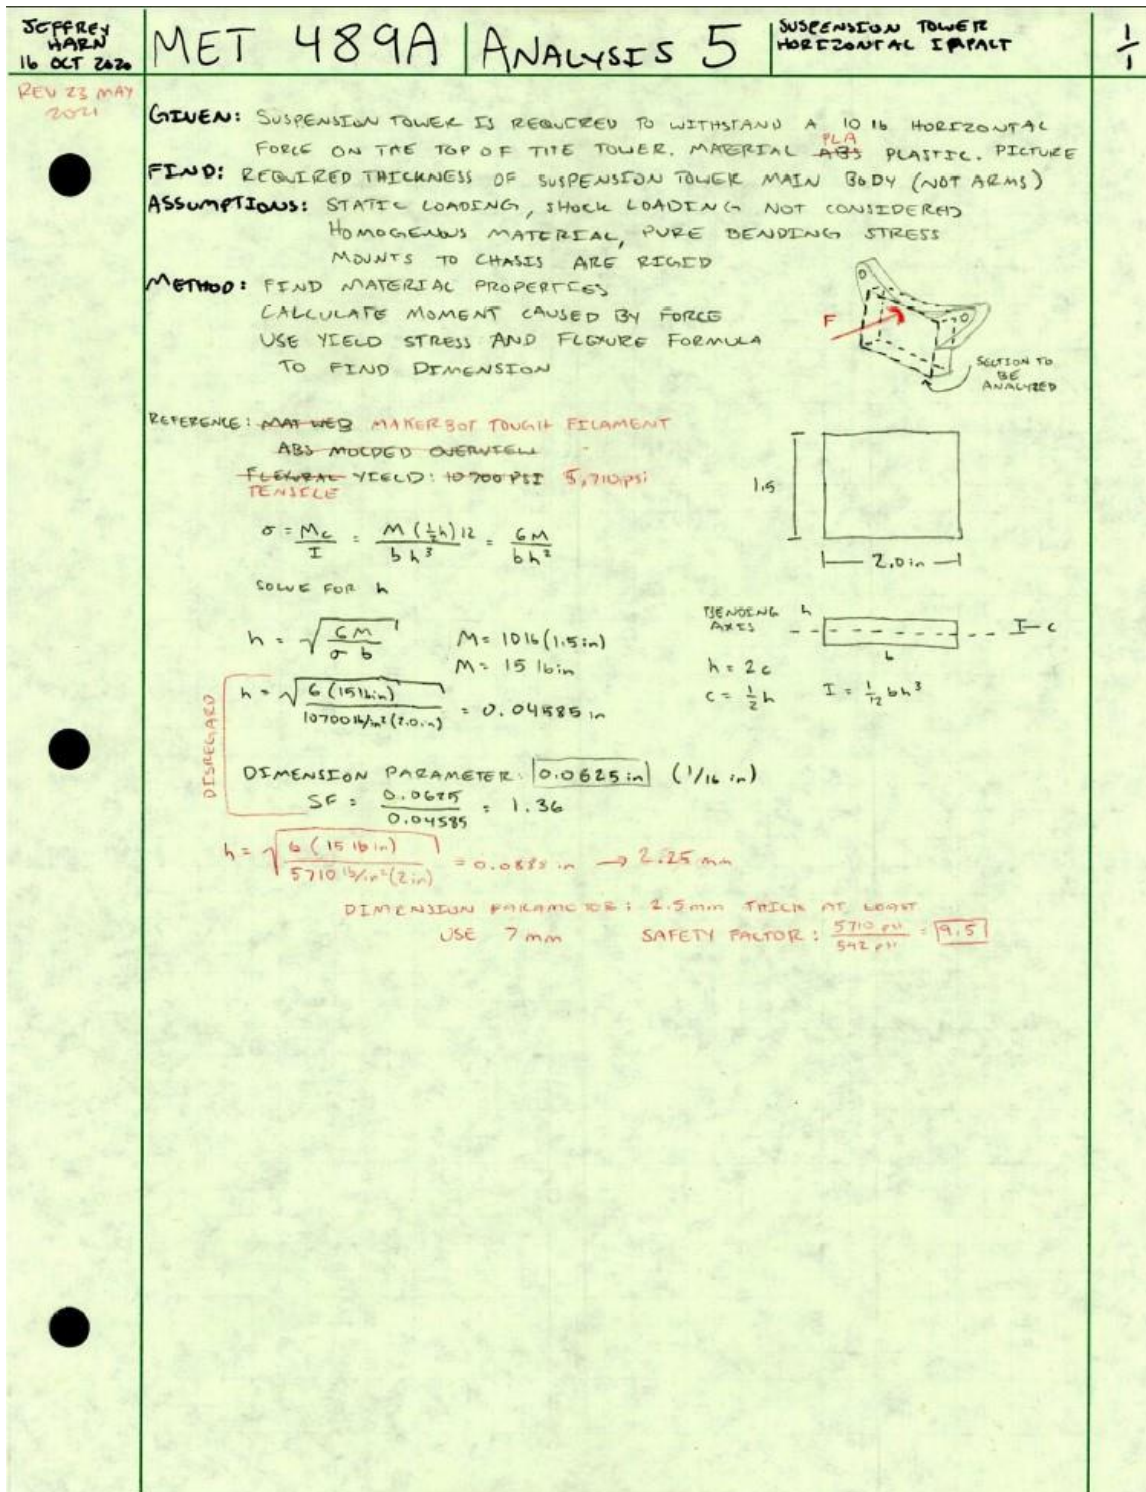 JEFFREY
HARN
16 OCT 2020
MET 489A
ANALYSIS 5
SUSPENSION TOWER
HORIZONTAL IMPACT
1/1
REV 23 MAY
2021
GIVEN: SUSPENSION TOWER IS REQUIRED TO WITHSTAND A 10 lb HORIZONTAL
FORCE ON THE TOP OF THE TOWER. MATERIAL ABS PLA PLASTIC. PICTURE
FIND: REQUIRED THICKNESS OF SUSPENSION TOWER MAIN BODY (NOT ARMS)
ASSUMPTIONS: STATIC LOADING, SHOCK LOADING NOT CONSIDERED
HOMOGENOUS MATERIAL, PURE BENDING STRESS
MOUNTS TO CHASIS ARE RIGID
METHOD: FIND MATERIAL PROPERTIES
CALCULATE MOMENT CAUSED BY FORCE
USE YIELD STRESS AND FLEXURE FORMULA
TO FIND DIMENSION
F
SECTION TO
BE
ANALYZED
REFERENCE: MAT WEB MAKERBOT TOUGH FILAMENT
ABS MOLDED OVERVIEW
FLEXURAL YIELD: 10700 PSI 5,710 psi
TENSILE
1.5
2.0 in
σ = Mc/I = M(½h)12/bh³ = 6M/bh²
SOLVE FOR h
h = √(6M/σb)
M = 10 lb (1.5 in)
M = 15 lb in
BENDING
AXIS
h
b
I c
h = 2c
c = ½h
I = 1/12 bh³
DISREGARD
h = √(6(15 lb in)/10700 lb/in² (2.0 in)) = 0.04585 in
DIMENSION PARAMETER: 0.0625 in (1/16 in)
SF = 0.0625/0.04585 = 1.36
h = √(6(15 lb in)/5710 lb/in² (2 in)) = 0.0888 in → 2.25 mm
DIMENSION PARAMETER: 2.5mm THICK AT LEAST
USE 7 mm
SAFETY FACTOR: 5710 psi/542 psi = 9.5